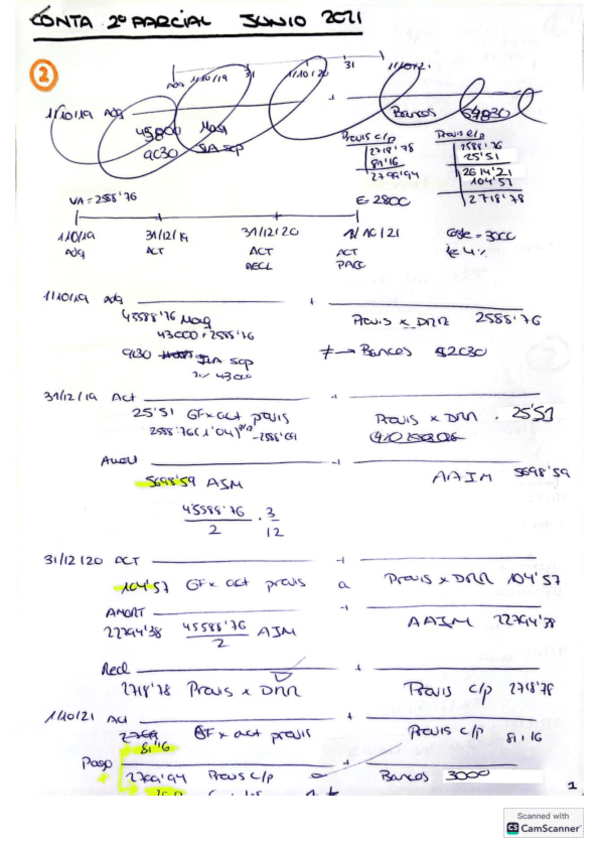 CONTA 2º PARCIAL JUNIO 2021
2
31
31
Adq 1/10/19 1/10/20 1/10/21
1/10/19 Adq + Bancos
45800 Maq
9030 IVA sop
Provis c/p Provis l/p
2718'78 2588'76
81'16 25'51
2799'94 2614'21
104'57
2718'78
VA = 2588'76 E = 2800
1/10/19 31/12/19 31/12/20 1/10/21 Coste = 3000
Adq ACT ACT ACT ie 4%
RECL PAGO
1/10/19 adq +
45588'76 Maq Provis x DRR 2588'76
43000 + 2588'76
9030 IVA sop ≠ → Bancos 52030
43000
31/12/19 Act +
25'51 GF x act provis Provis x DRR 25'51
2588'76(1'04)^3/12
Amort +
5698'59 AIM AAIM 5698'59
45588'76 / 2 · 3 / 12
31/12/20 ACT +
104'57 GF x act provis a Provis x DRR 104'57
AMORT +
22794'38 45588'76 / 2 AIM AAIM 22794'38
Recl +
2718'78 Provis x DRR Provis c/p 2718'78
1/10/21 Act +
81'16 GF x act provis Provis c/p 81'16
Pago +
2799'94 Provis c/p a Bancos 3000
1
Scanned with
CS CamScanner